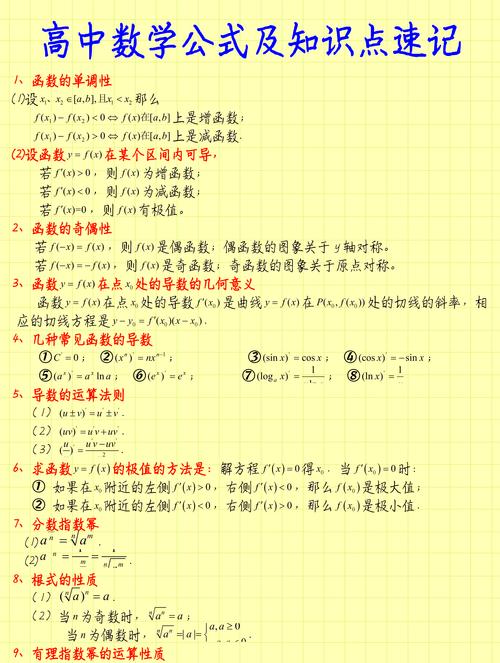 高中数学公式及知识点速记
1、函数的单调性
(1)设x₁、x₂∈[a,b],且x₁<x₂那么
f(x₁)−f(x₂)<0⇔f(x)在[a,b]上是增函数；
f(x₁)−f(x₂)>0⇔f(x)在[a,b]上是减函数.
(2)设函数y=f(x)在某个区间内可导，
若f′(x)>0，则f(x)为增函数；
若f′(x)<0，则f(x)为减函数；
若f′(x)=0，则f(x)有极值。
2、函数的奇偶性
若f(−x)=f(x)，则f(x)是偶函数；偶函数的图象关于y轴对称。
若f(−x)=−f(x)，则f(x)是奇函数；奇函数的图象关于原点对称。
3、函数y=f(x)在点x₀处的导数的几何意义
函数y=f(x)在点x₀处的导数f′(x₀)是曲线y=f(x)在P(x₀,f(x₀))处的切线的斜率，相
应的切线方程是y−y₀=f′(x₀)(x−x₀).
4、几种常见函数的导数
①C′=0；②(xⁿ)′=nxⁿ⁻¹；③(sin x)′=cos x；④(cos x)′=−sin x；
⑤(aˣ)′=aˣ ln a；⑥(eˣ)′=eˣ；⑦(logₐ x)′=1/；⑧(ln x)′=1/
5、导数的运算法则
（1）(u±v)′=u′±v′.
（2）(uv)′=u′v+uv′.
（3）(u/)′=u′v−uv′/2.
6、求函数y=f(x)的极值的方法是：解方程f′(x)=0得x₀．当f′(x₀)=0时：
① 如果在x₀附近的左侧f′(x)>0，右侧f′(x)<0，那么f(x₀)是极大值；
② 如果在x₀附近的左侧f′(x)<0，右侧f′(x)>0，那么f(x₀)是极小值.
7、分数指数幂
(1)a ⁿ=ⁿ√aᵐ.
(2)a ⁿ=1/m=1/ⁿ√m.
8、根式的性质
（1）(ⁿ√a)ⁿ=a.
（2）当n为奇数时，ⁿ√aⁿ=a；
当n为偶数时，ⁿ√aⁿ=|a|={a,a≥0
9、有理指数幂的运算性质